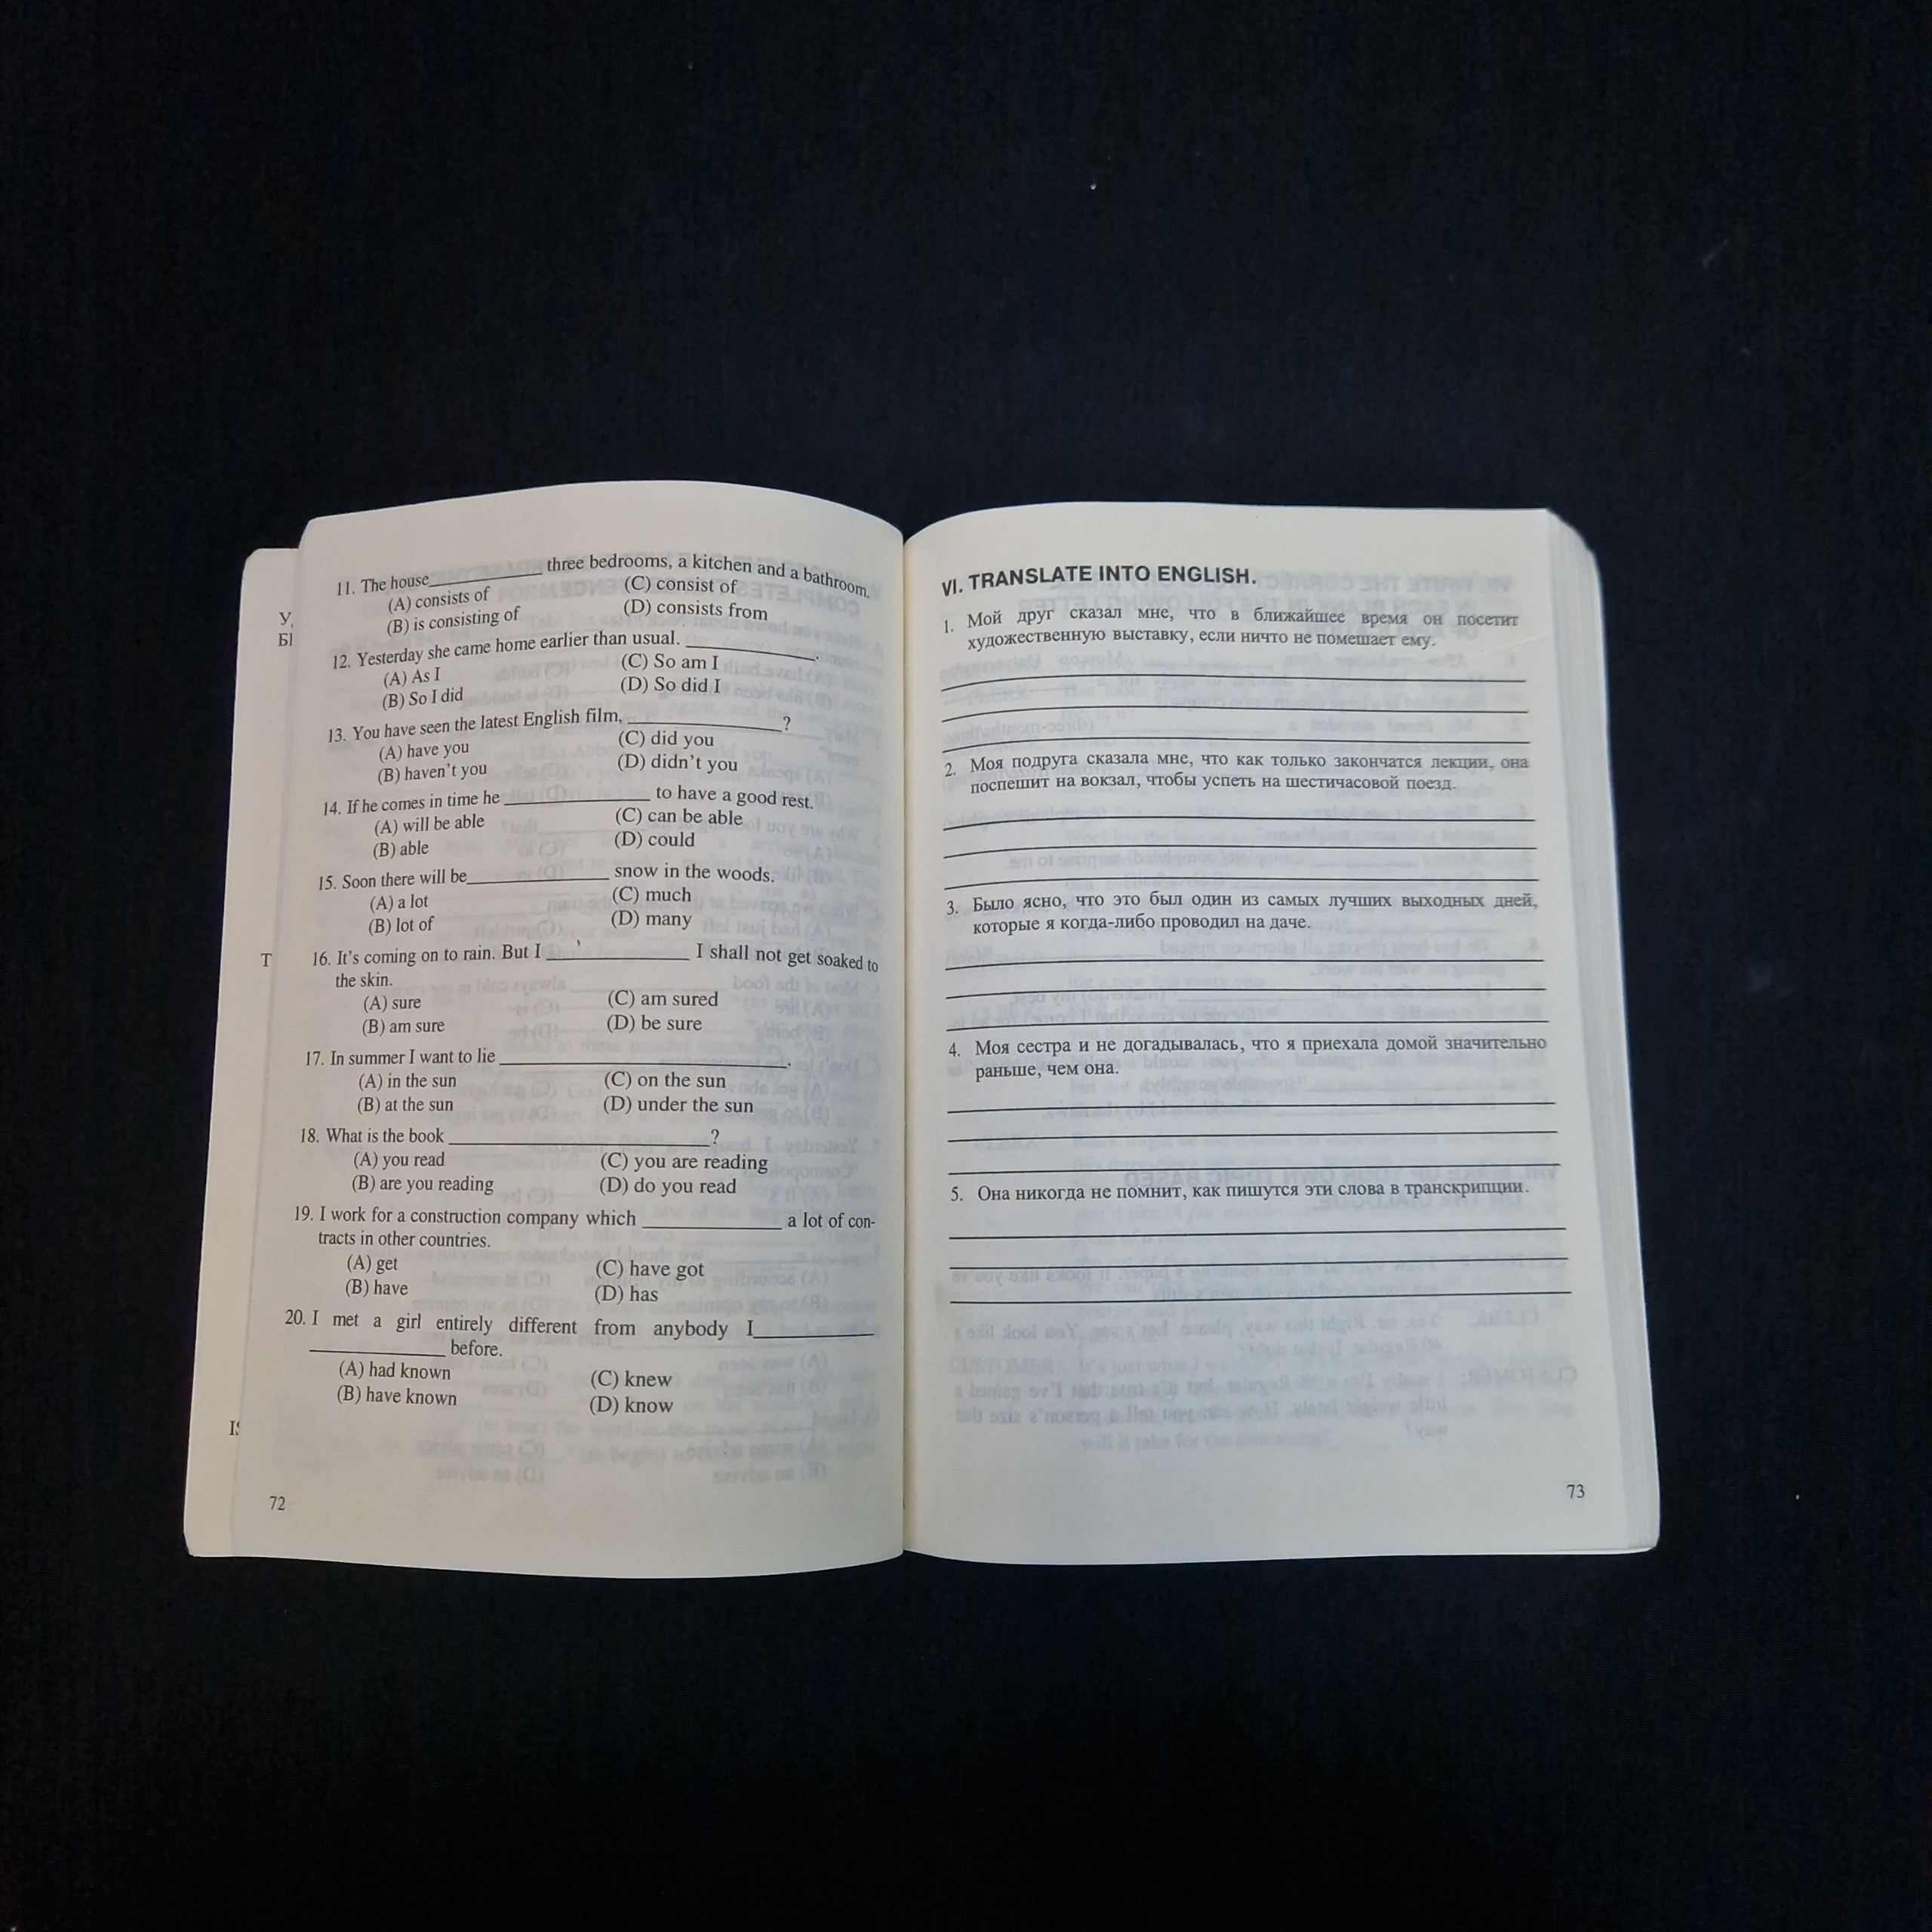 11. The house__________ three bedrooms, a kitchen and a bathroom.
(A) consists of (C) consist of
(B) is consisting of (D) consists from
12. Yesterday she came home earlier than usual. __________.
(A) As I (C) So am I
(B) So I did (D) So did I
13. You have seen the latest English film, __________?
(A) have you (C) did you
(B) haven't you (D) didn't you
14. If he comes in time he __________ to have a good rest.
(A) will be able (C) can be able
(B) able (D) could
15. Soon there will be__________ snow in the woods.
(A) a lot (C) much
(B) lot of (D) many
16. It's coming on to rain. But I __________ I shall not get soaked to
the skin.
(A) sure (C) am sured
(B) am sure (D) be sure
17. In summer I want to lie __________.
(A) in the sun (C) on the sun
(B) at the sun (D) under the sun
18. What is the book __________?
(A) you read (C) you are reading
(B) are you reading (D) do you read
19. I work for a construction company which __________ a lot of con-
tracts in other countries.
(A) get (C) have got
(B) have (D) has
20. I met a girl entirely different from anybody I__________
__________ before.
(A) had known (C) knew
(B) have known (D) know
72
VI. TRANSLATE INTO ENGLISH.
1. Мой друг сказал мне, что в ближайшее время он посетит
художественную выставку, если ничто не помешает ему.
2. Моя подруга сказала мне, что как только закончатся лекции, она
поспешит на вокзал, чтобы успеть на шестичасовой поезд.
3. Было ясно, что это был один из самых лучших выходных дней,
которые я когда-либо проводил на даче.
4. Моя сестра и не догадывалась, что я приехала домой значительно
раньше, чем она.
5. Она никогда не помнит, как пишутся эти слова в транскрипции.
73